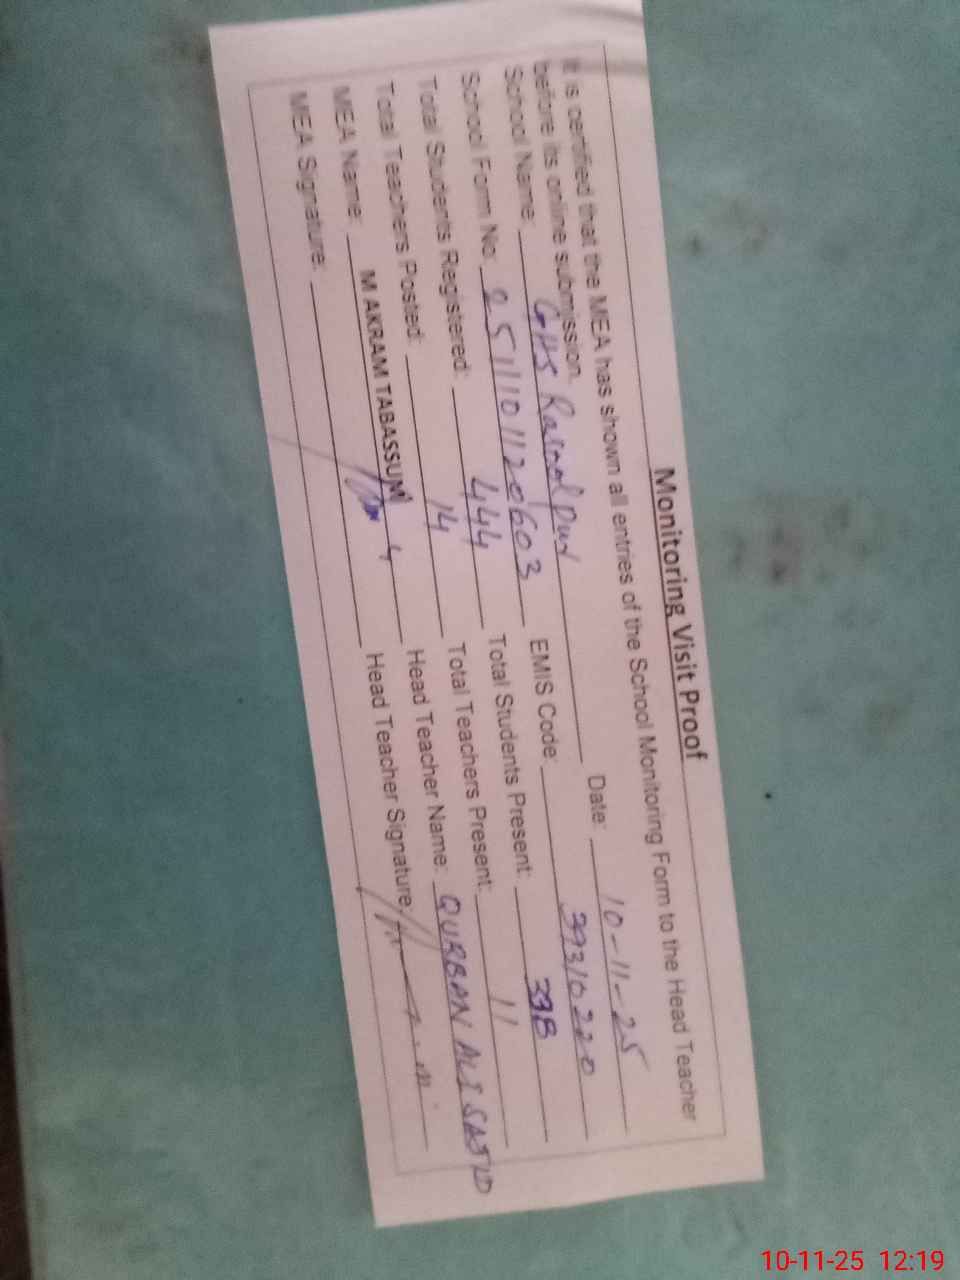 Monitoring Visit Proof
It is certified that the MEA has shown all entries of the School Monitoring Form to the Head Teacher
before its online submission. Date: 10-11-25
School Name: GHS Rasool Pur EMIS Code: 39310220
School Form No: 2511101120603 Total Students Present: 398
Total Students Registered: 444 Total Teachers Present: 11
Total Teachers Posted: 14 Head Teacher Name: QURBAN ALI SAJID
MEA Name: M AKRAM TABASSUM Head Teacher Signature:
MEA Signature:
10-11-25 12:19